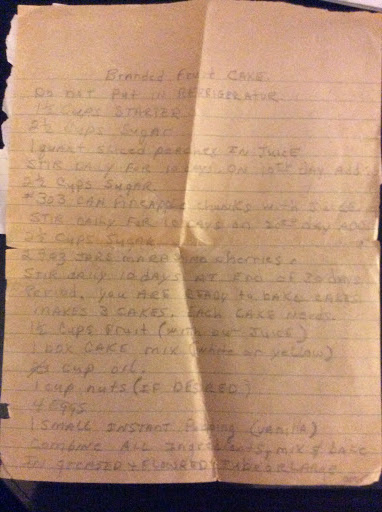 Branded Fruit CAKE.
DO NOT PUT IN REFRIGERATOR.
1½ Cups STARTER
2½ Cups Sugar
1 quart sliced peaches IN JUICE
STIR DAILY FOR 10 days. ON 10th DAY ADD
2½ Cups Sugar.
#303 CAN PINEAPPLE chunks with JUICE
STIR DAILY FOR 10 days ON 20th DAY ADD
2½ Cups Sugar
2 303 JARS MARASCHINO cherries.
STIR daily 10 days. AT END OF 30 DAY
Period, you ARE READY to bake CAKES
MAKES 3 CAKES. EACH CAKE NEEDS.
1½ Cups Fruit (without JUICE)
1 box CAKE mix (white or yellow)
⅔ Cup oil.
1 cup nuts (IF DESIRED)
4 EGGS
1 SMALL INSTANT Pudding (vanilla)
Combine ALL Ingredients, mix & bake
IN greased & FLOURED TUBE or LARGE